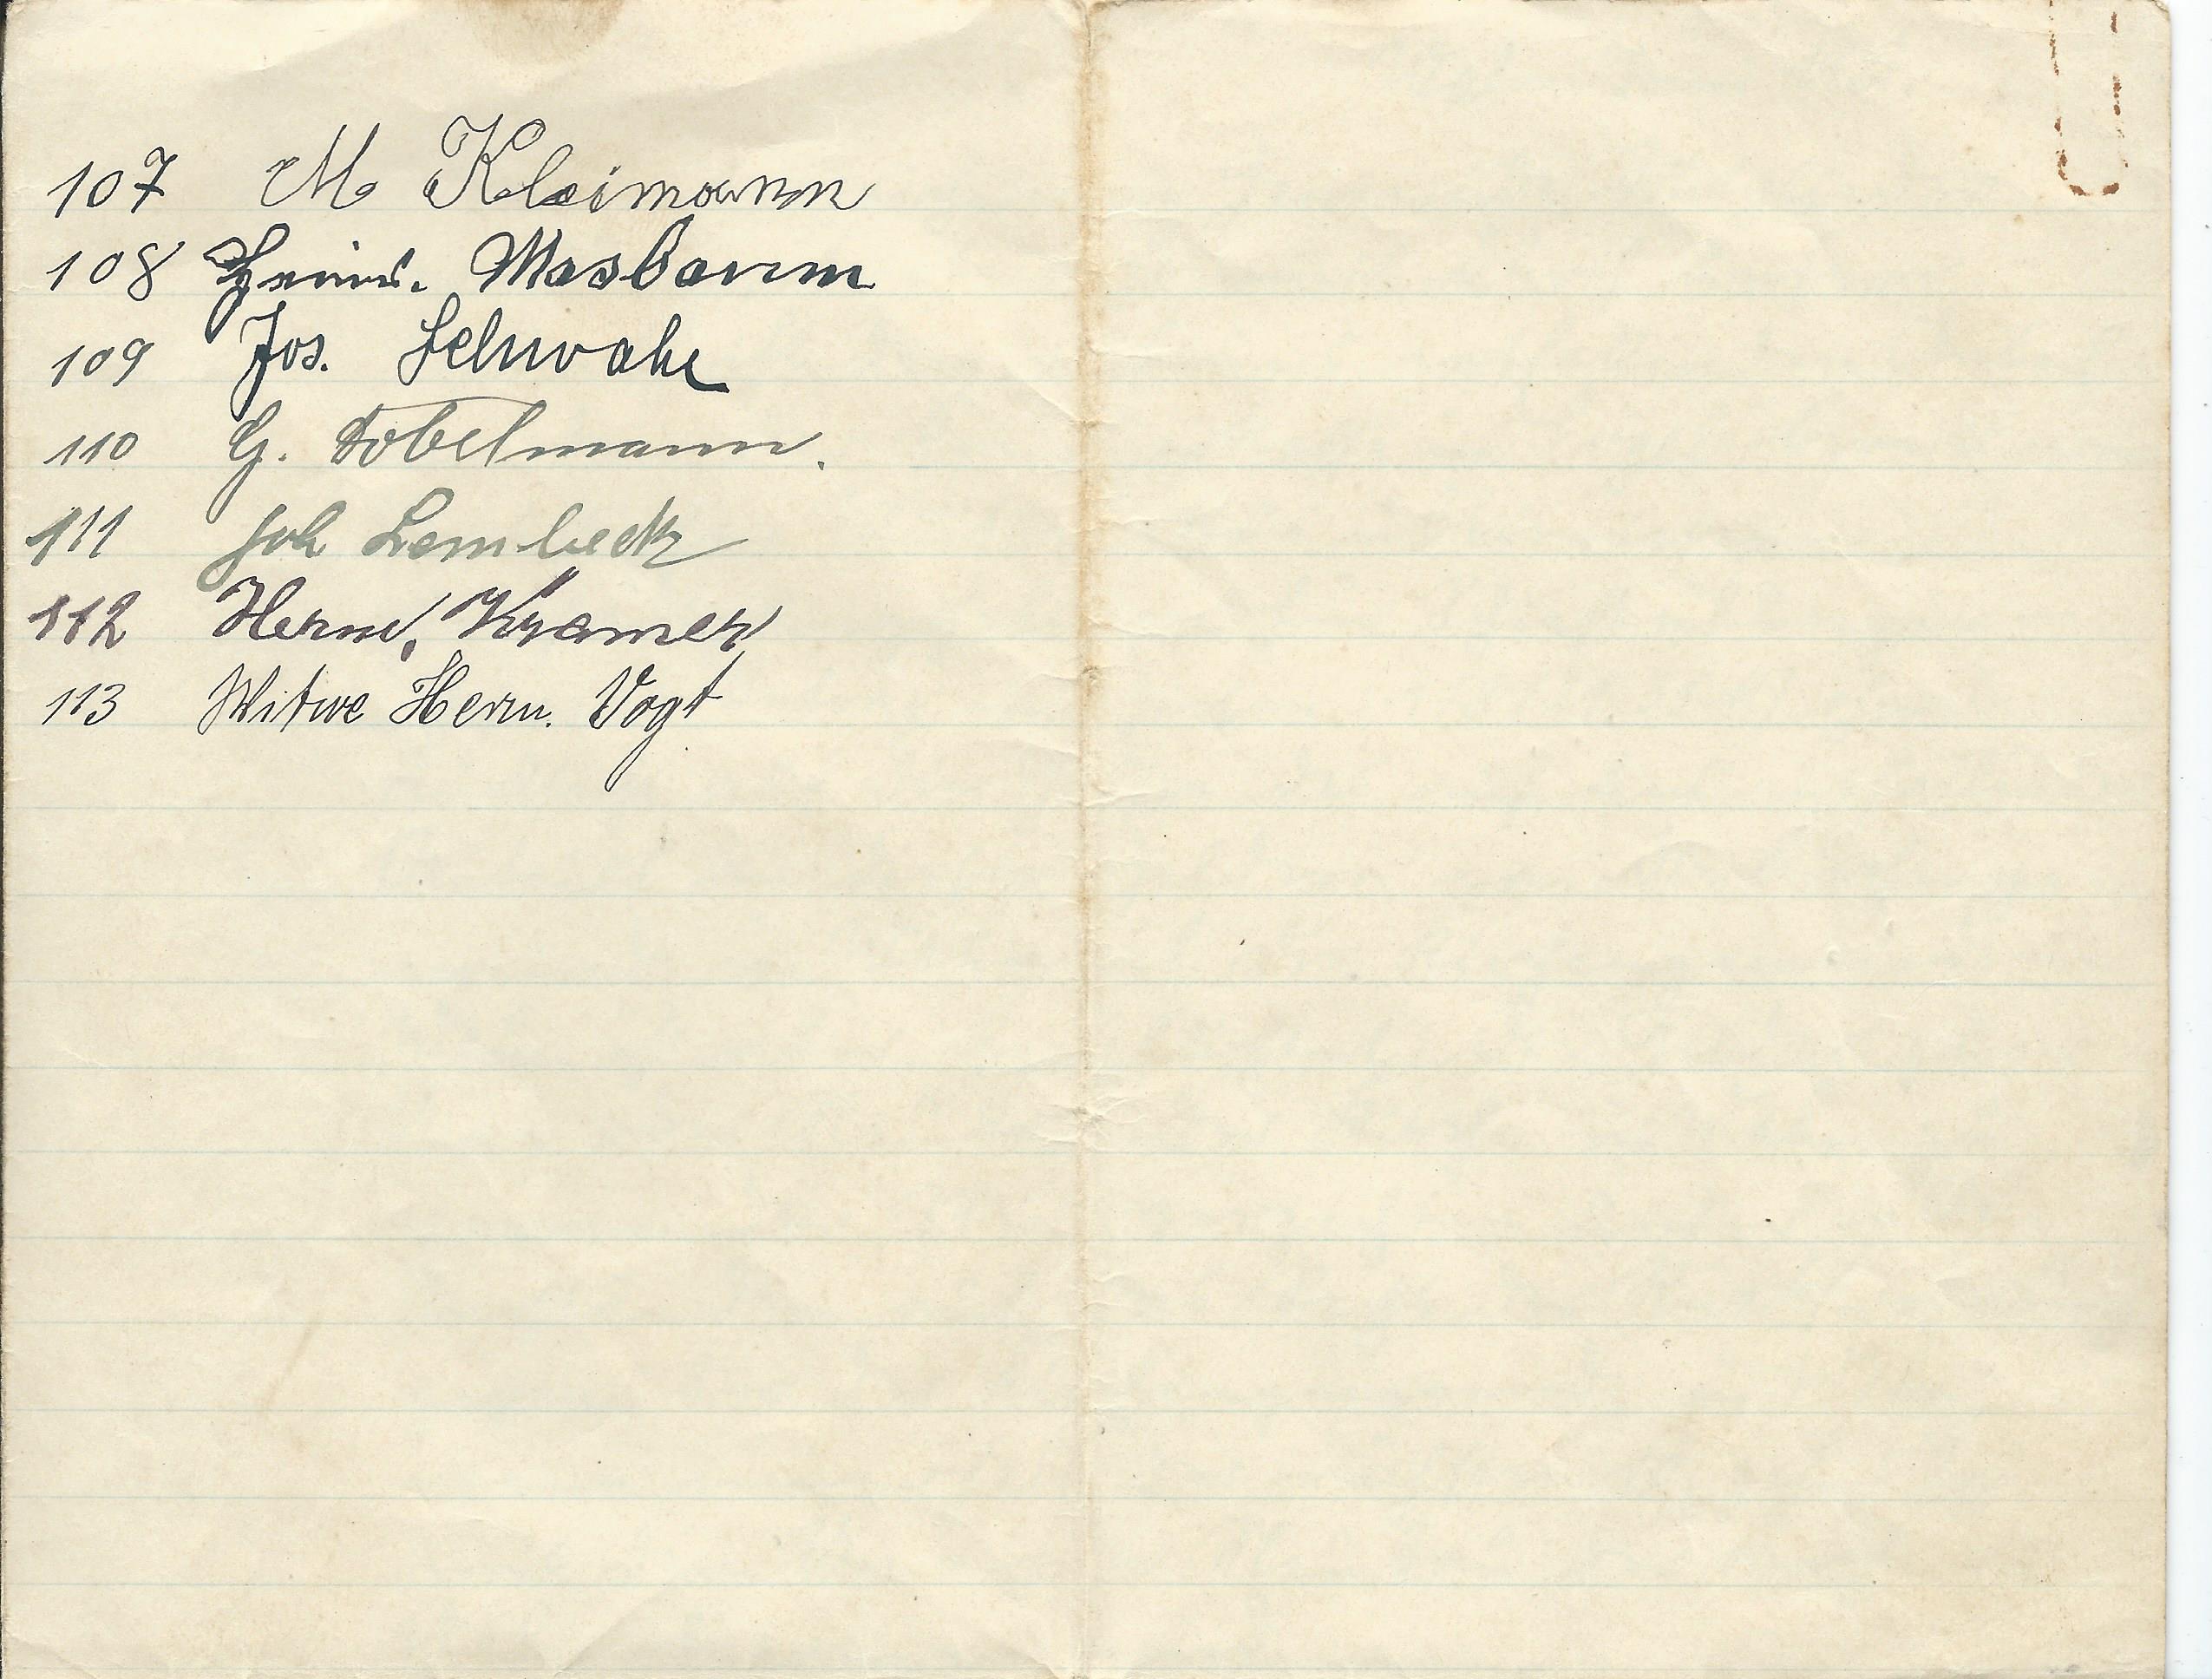 107 M Kleimann
108 Heinr. Masbaum
109 Jos. Schwake
110 G. Fobelmann.
111 Joh Lembeck
112 Herm. Kramer
113 Witwe Herm. Vogt